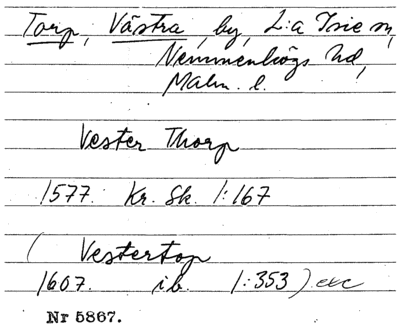 Torp, Västra, by, L:a Isie sn,
Vemmenhögs hd,
Malm. l.
Vester Thorp
1577. Kr. Sk. 1:167
( Vestertop
1607. ib. 1:353 ) exc
Nr 5867.